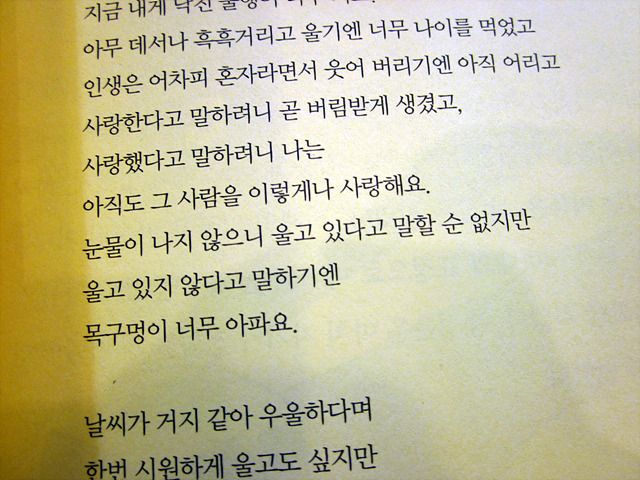 지금 내게 닥친
아무 데서나 흑흑거리고 울기엔 너무 나이를 먹었고
인생은 어차피 혼자라면서 웃어 버리기엔 아직 어리고
사랑한다고 말하려니 곧 버림받게 생겼고,
사랑했다고 말하려니 나는
아직도 그 사람을 이렇게나 사랑해요.
눈물이 나지 않으니 울고 있다고 말할 순 없지만
울고 있지 않다고 말하기엔
목구멍이 너무 아파요.
날씨가 거지 같아 우울하다며
한번 시원하게 울고도 싶지만